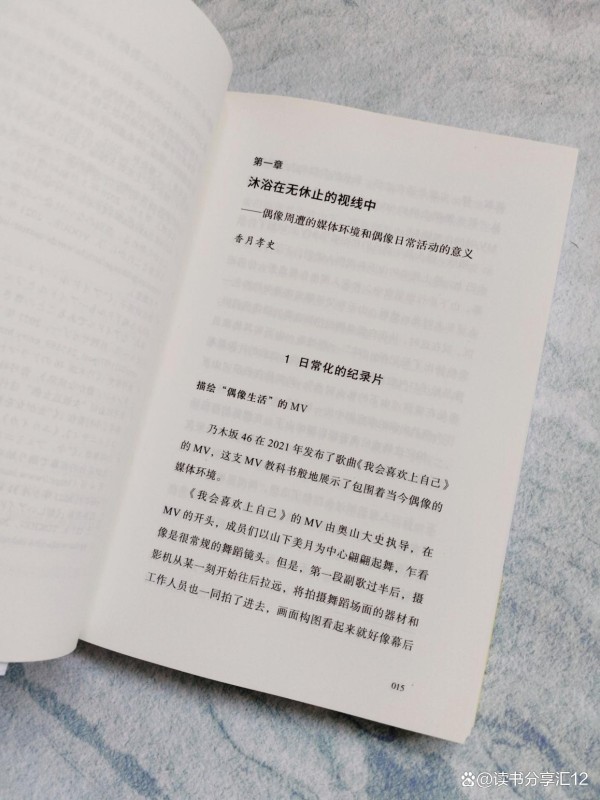 第一章
沐浴在无休止的视线中
——偶像周遭的媒体环境和偶像日常活动的意义
香月孝史
1 日常化的纪录片
描绘“偶像生活”的MV
乃木坂46在2021年发布了歌曲《我会喜欢上自己》
的MV，这支MV教科书般地展示了包围着当今偶像的
媒体环境。
《我会喜欢上自己》的MV由奥山大史执导，在
MV的开头，成员们以山下美月为中心翩翩起舞，乍看
像是很常规的舞蹈镜头。但是，第一段副歌过半后，摄
影机从某一刻开始往后拉远，将拍摄舞蹈场面的器材和
工作人员也一同拍了进去，画面构图看起来就好像幕后
015
@读书分享汇12